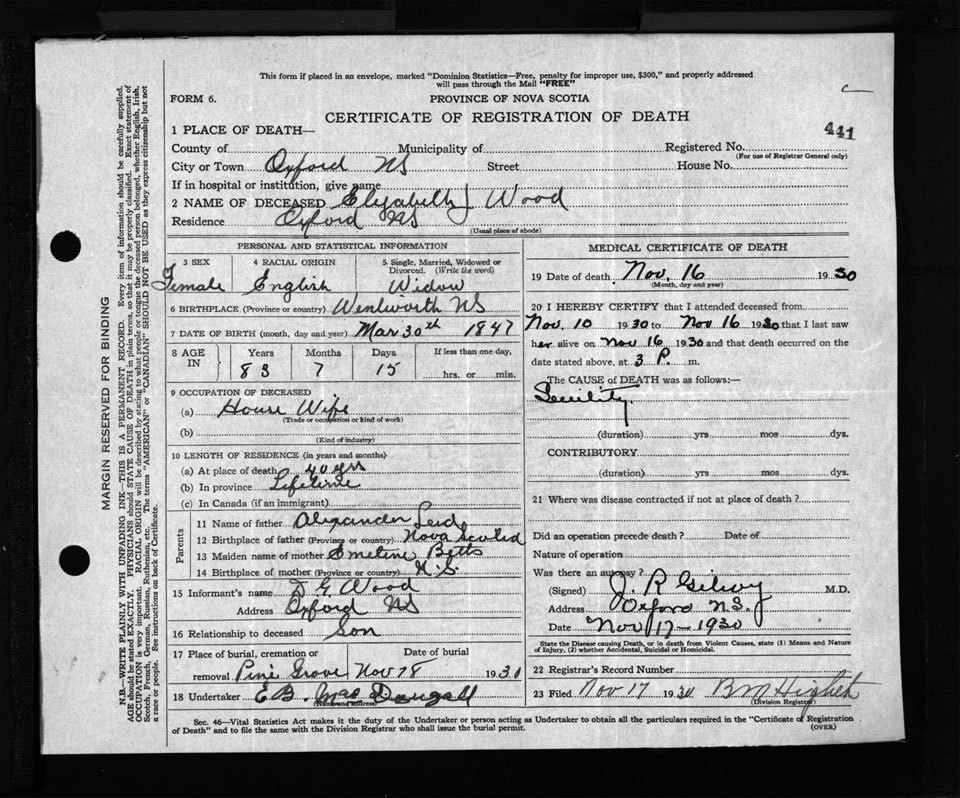 This form if placed in an envelope, marked "Dominion Statistics—Free, penalty for improper use, $300," and properly addressed
will pass through the Mail "FREE"
FORM 6.
PROVINCE OF NOVA SCOTIA
CERTIFICATE OF REGISTRATION OF DEATH
441
1 PLACE OF DEATH—
County of Municipality of Registered No.
(For use of Registrar General only)
City or Town Oxford NS Street House No.
If in hospital or institution, give name
2 NAME OF DECEASED Elizabeth J Wood
Residence Oxford NS
(Usual place of abode)
PERSONAL AND STATISTICAL INFORMATION
3 SEX 4 RACIAL ORIGIN 5 Single, Married, Widowed or
Divorced. (Write the word)
Female English Widow
6 BIRTHPLACE (Province or country) Wentworth NS
7 DATE OF BIRTH (month, day and year) Mar 30th 1847
8 AGE IN Years Months Days If less than one day,
83 7 15 hrs. or min.
9 OCCUPATION OF DECEASED
(a) House Wife
(Trade or occupation or kind of work)
(b)
(Kind of industry)
10 LENGTH OF RESIDENCE (in years and months)
(a) At place of death 40 yrs
(b) In province Lifetime
(c) In Canada (if an immigrant)
Parents
11 Name of father Alexander
12 Birthplace of father (Province or country) Nova Scotia
13 Maiden name of mother Emeline Betts
14 Birthplace of mother (Province or country) N.S.
15 Informant's name Wood
Address Oxford NS
16 Relationship to deceased Son
17 Place of burial, cremation or Date of burial
removal Pine Grove Nov 18 1930
18 Undertaker E B. MacDougall
(Name and address)
MEDICAL CERTIFICATE OF DEATH
19 Date of death Nov. 16 1930
(Month, day and year)
20 I HEREBY CERTIFY that I attended deceased from
Nov. 10 1930 to Nov 16 1930 that I last saw
her alive on Nov 16 1930 and that death occurred on the
date stated above, at 3 P. m.
The CAUSE of DEATH was as follows:—
Senility.
(duration) yrs mos dys.
CONTRIBUTORY
(duration) yrs mos dys.
21 Where was disease contracted if not at place of death?
Did an operation precede death? Date of
Nature of operation
Was there an autopsy?
(Signed) J. R Gilroy M.D.
Address Oxford N.S.
Date Nov 17-1930
State the Disease causing Death, or in death from Violent Causes, state (1) Means and Nature
of Injury, (2) whether Accidental, Suicidal or Homicidal.
22 Registrar's Record Number
23 Filed Nov 17 1930
(Division Registrar)
Sec. 46—Vital Statistics Act makes it the duty of the Undertaker or person acting as Undertaker to obtain all the particulars required in the "Certificate of Registration
of Death" and to file the same with the Division Registrar who shall issue the burial permit.
(OVER)
MARGIN RESERVED FOR BINDING
N.B.—WRITE PLAINLY WITH UNFADING INK—THIS IS A PERMANENT RECORD. Every item of information should be carefully supplied.
AGE should be stated EXACTLY. PHYSICIANS should STATE CAUSE OF DEATH in plain terms, so that it may be properly classified. Exact statement of
OCCUPATION is very important. RACIAL ORIGIN will be described by stating to what people or tongue the deceased person belonged, whether English, Irish,
Scotch, French, German, Russian, Ruthenian, etc. The terms "AMERICAN" or "CANADIAN" SHOULD NOT BE USED as they express citizenship but not
a race or people. See instructions on back of Certificate.